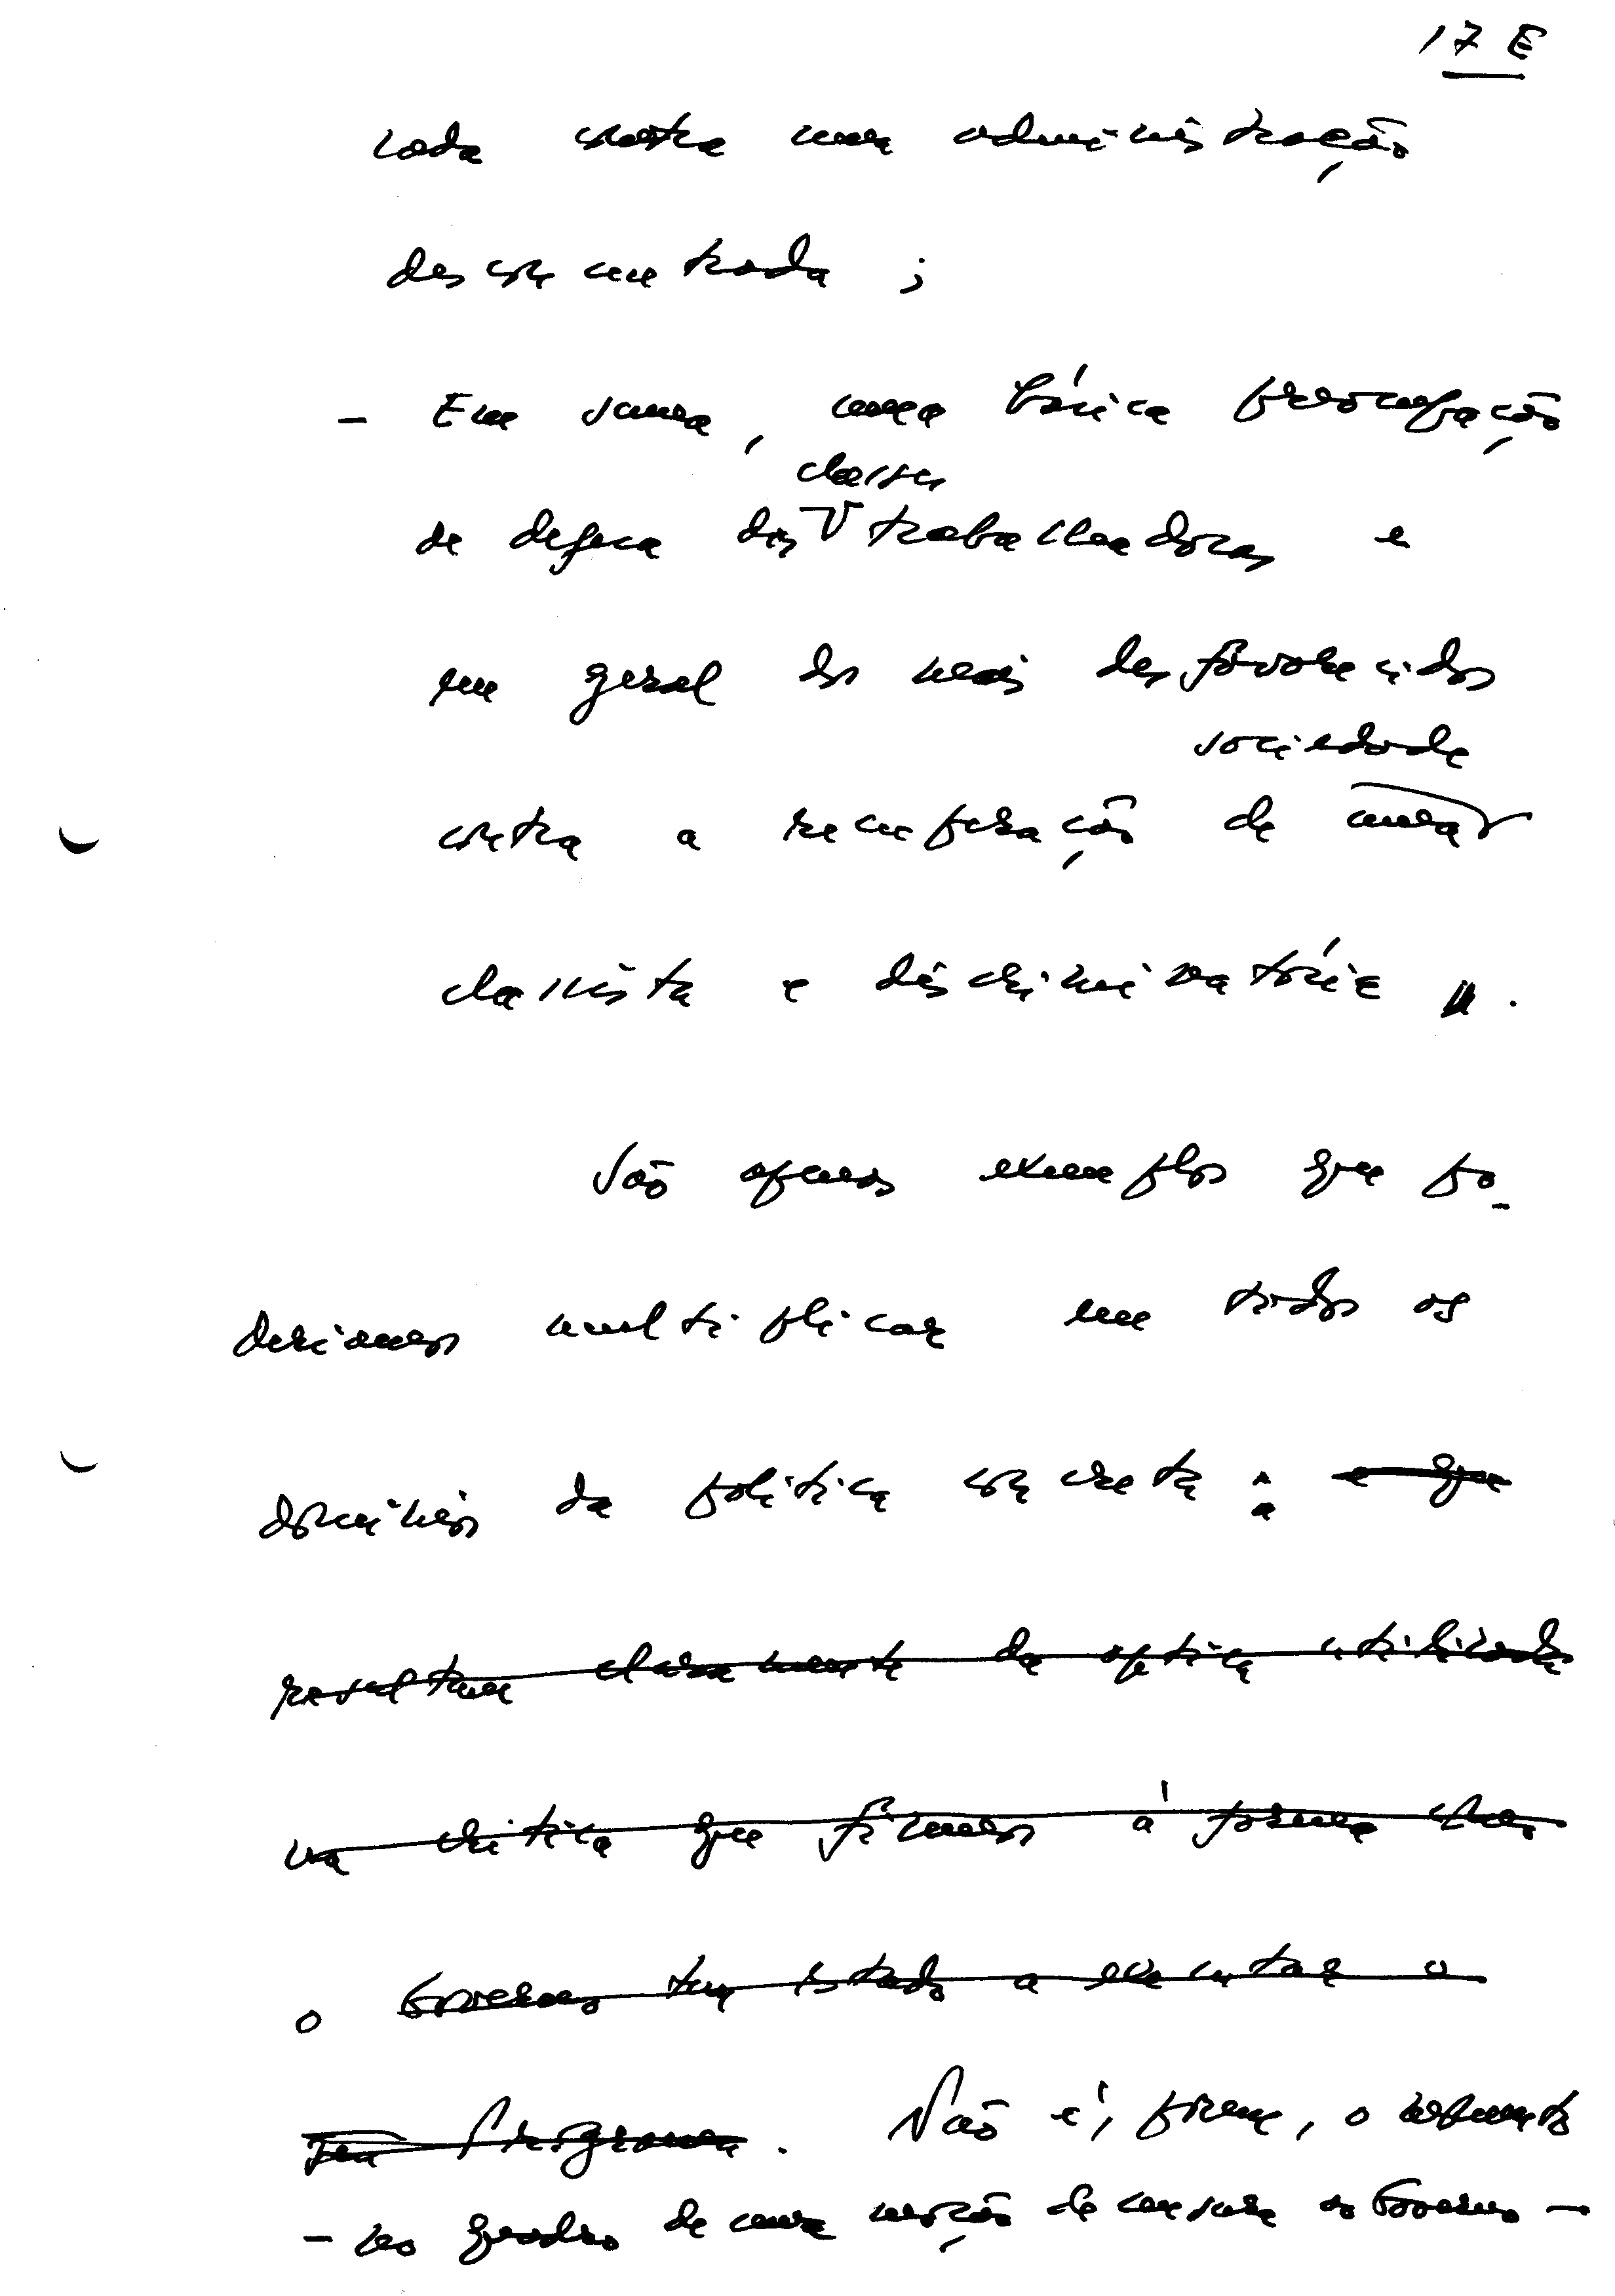 17 E
cada contra uma administração
desconcentrada;
- Em suma, uma básica preocupação
classes
de defesa das trabalhadoras e
em geral dos mais desfavorecidos
sociedade
contra a recuperação de uma
classista e discriminatória.
São apenas exemplos que po-
deríamos multiplicar em todos os
domínios da política concreta: e que
resultam claramente da óptica utilizada
na crítica que fizemos à forma como
o Governo tem estado a executar o
seu Programa. Não é, porém, o momento
- no quadro de uma moção de censura ao Governo -